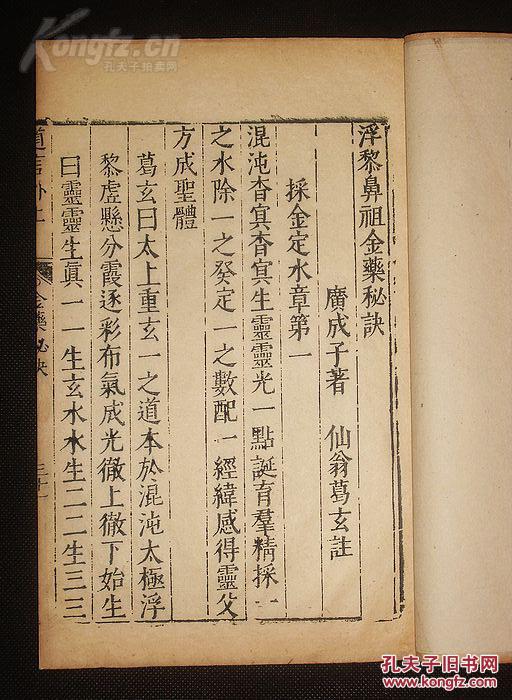 浮黎鼻祖金藥秘訣
廣成子著　仙翁葛玄註
採金定水章第一
混沌杳冥杳冥生靈靈光一點誕育羣精採一
之水除一之癸定一之數配一經緯感得靈父
方成聖體
葛玄曰太上重玄一之道本於混沌太極浮
黎虛懸分霞逐彩布氣成光徹上徹下始生
曰靈靈生眞一一生玄水水生二二生三三
道言外二
金藥秘訣
三十一
Kongfz.cn
孔夫子拍卖网
孔夫子旧书网
www.kongfz.com